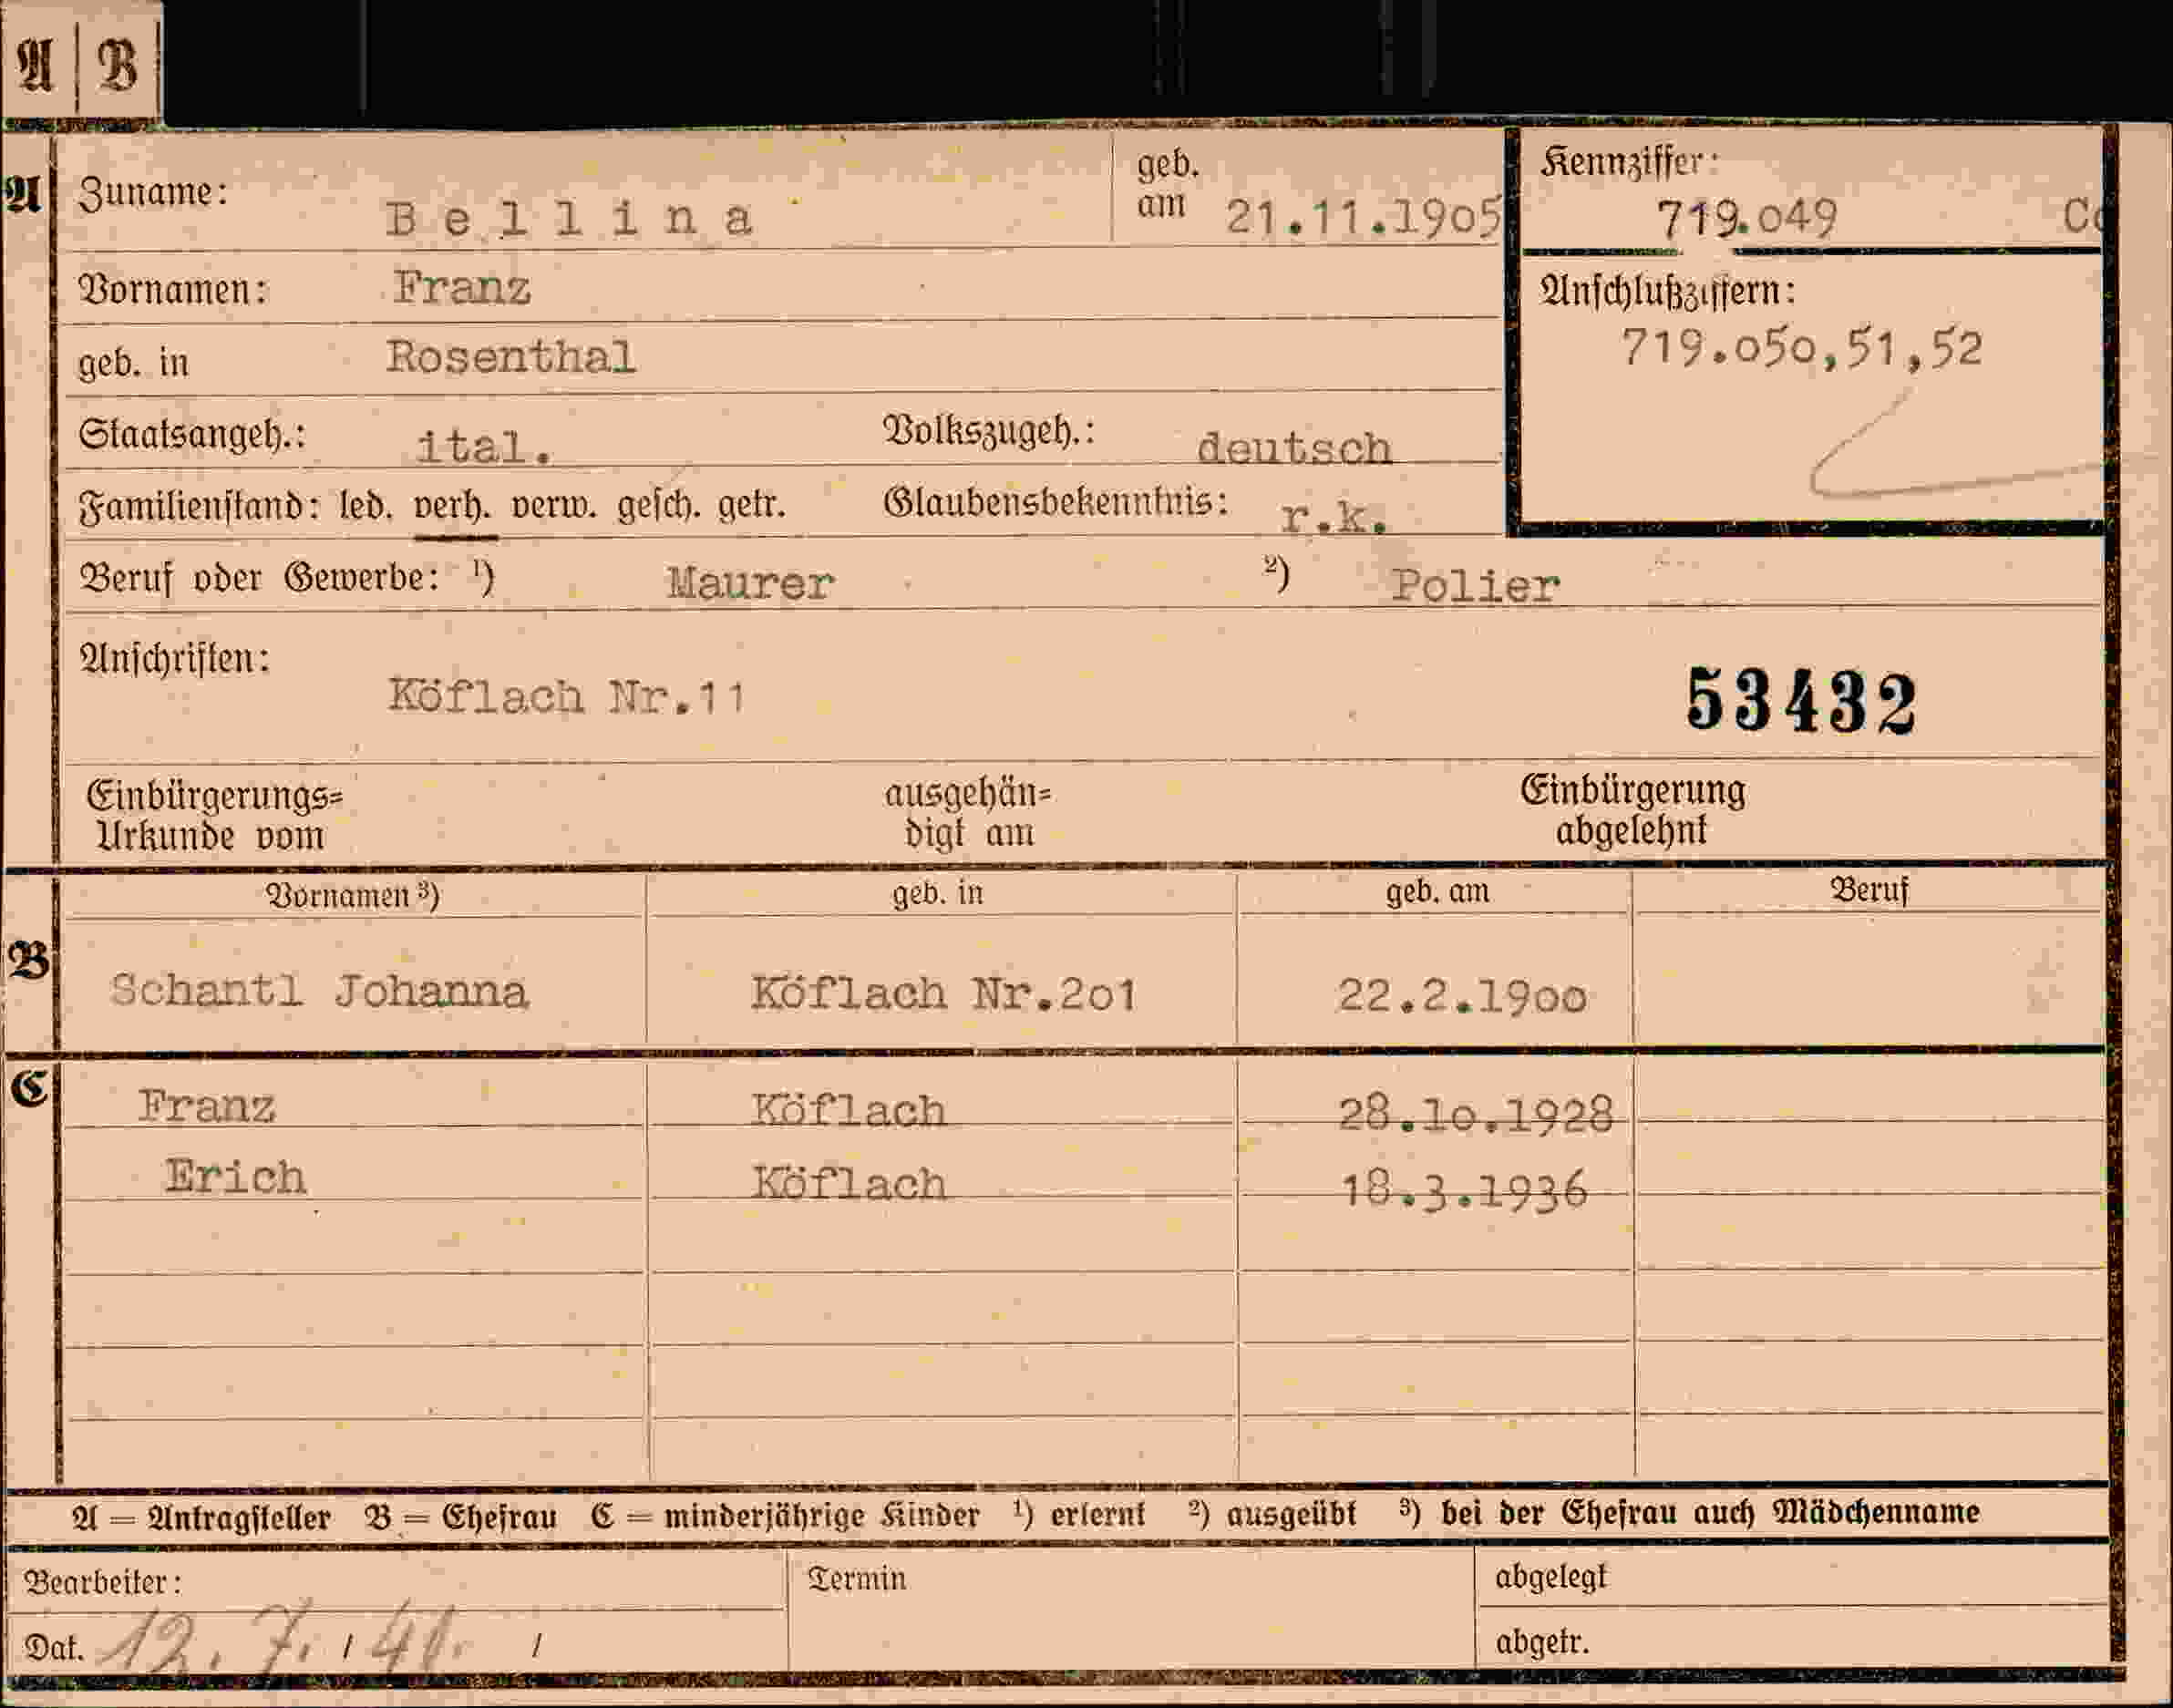 A B
A Zuname: Bellina geb. am 21.11.1905 Kennziffer: 719.049
Vornamen: Franz
Anschlußziffern: 719.050,51,52
geb. in Rosenthal
Staatsangeh.: ital. Volkszugeh.: deutsch
Familienstand: led. verh. verw. gesch. getr. Glaubensbekenntnis: r.k.
Beruf oder Gewerbe: ¹) Maurer ²) Polier
Anschriften:
Köflach Nr.11 53432
Einbürgerungs= ausgehän= Einbürgerung
Urkunde vom digt am abgelehnt
Vornamen ³) geb. in geb. am Beruf
B Schantl Johanna Köflach Nr.201 22.2.1900
C Franz Köflach 28.10.1928
Erich Köflach 18.3.1936
A = Antragsteller B = Ehefrau C = minderjährige Kinder ¹) erlernt ²) ausgeübt ³) bei der Ehefrau auch Mädchenname
Bearbeiter: Termin abgelegt
Dat. 12. 7. / 41. / abgetr.